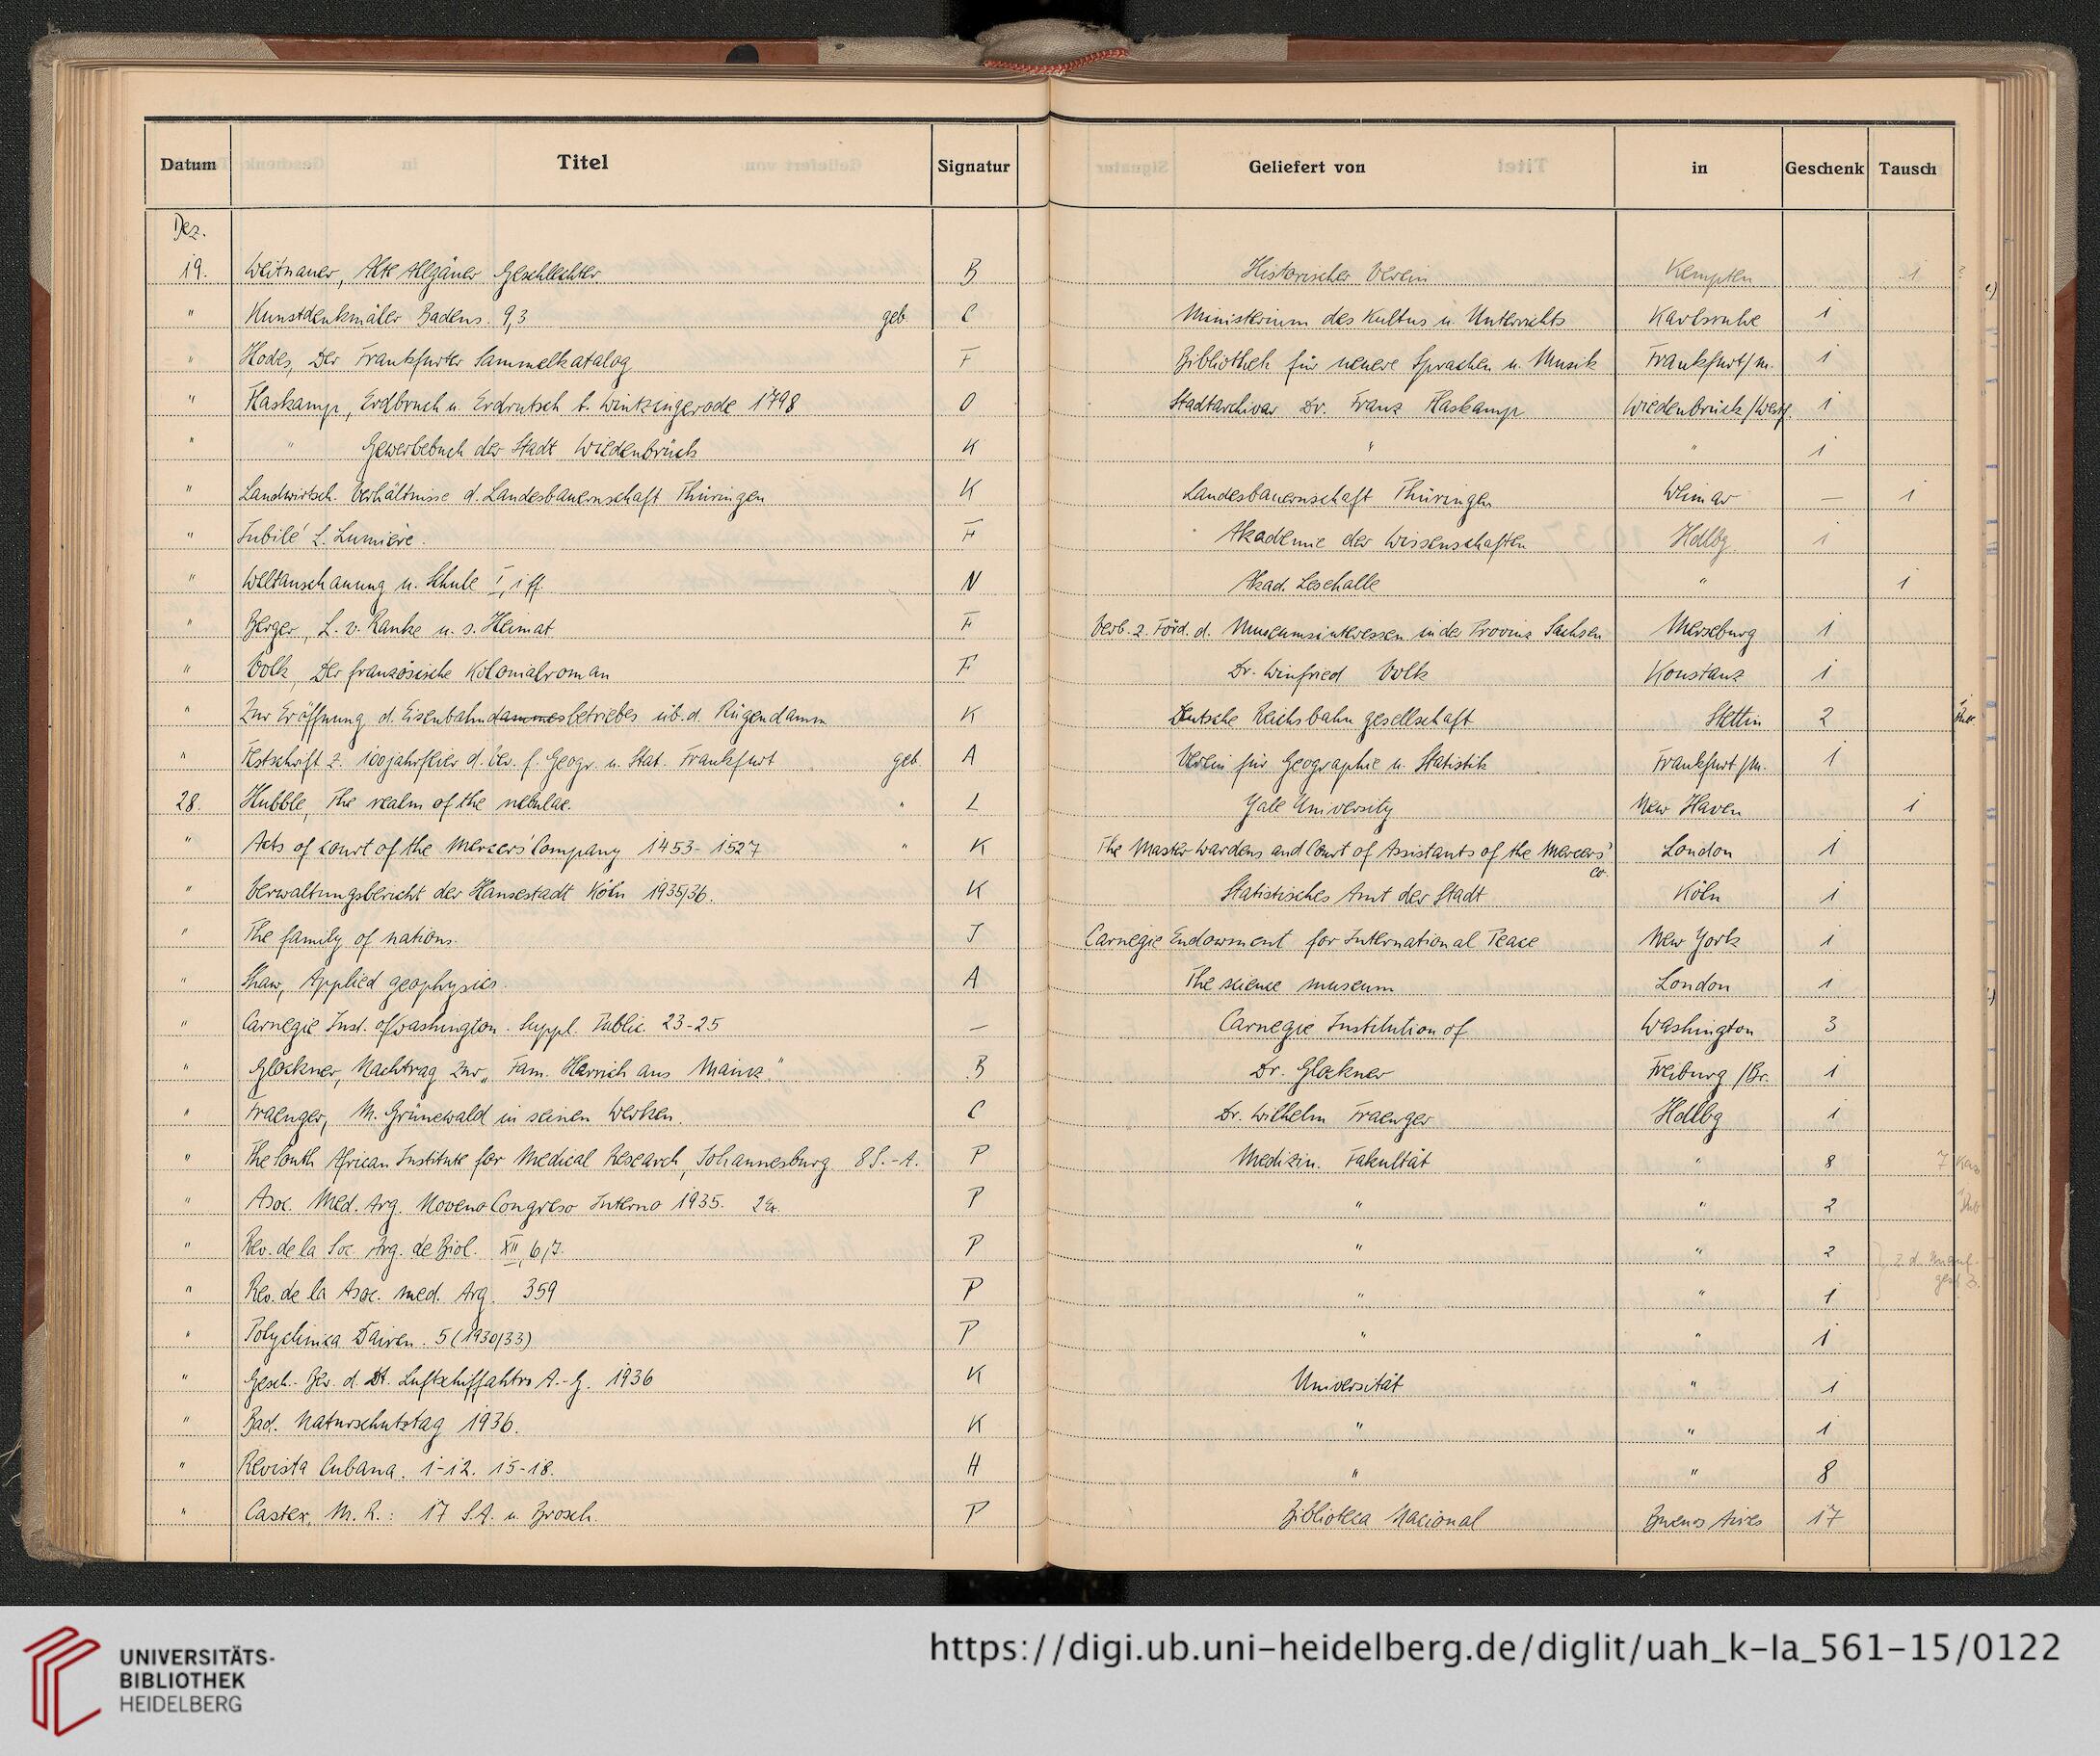 Datum Titel Signatur Geliefert von in Geschenk Tausch
Dez.
19. Weitnauer, Alte Allgäuer Geschlechter B Historischer Verein Kempten 1 ?
" Kunstdenkmäler Badens. 9,3 geb C Ministerium des Kultus u. Unterrichts Karlsruhe 1
" Hodes, Der Frankfurter Sammelkatalog F Bibliothek für neuere Sprachen u. Musik Frankfurt/M. 1
" Flaskamp, Erdbruch u. Erdrutsch b. Wintzingerode 1798 O Stadtarchivar Dr. Franz Flaskamp Wiedenbrück/Westf. 1
" " Gewerbebuch der Stadt Wiedenbrück K " " 1
" Landwirtsch. Verhältnisse d. Landesbauernschaft Thüringen K Landesbauernschaft Thüringen Weimar — 1
" Jubilé L. Lumière. F Akademie der Wissenschaften Hdlbg 1
" Weltanschauung u. Schule I, 1 ff N Akad. Lesehalle " 1
" Berger, L. v. Ranke u. s. Heimat F Verb. z. Förd. d. Museumsinteressen in der Provinz Sachsen Merseburg 1
" Volk, Der französische Kolonialroman F Dr. Winfried Volk Konstanz 1
" Zur Eröffnung d. Eisenbahndammesbetriebes üb. d. Rügendamm K Deutsche Reichsbahngesellschaft Stettin 2
" Festschrift z. 100jahrfeier d. Ver. f. Geogr. u. Stat. Frankfurt geb. A Verein für Geographie u. Statistik Frankfurt/M. 1
28. Hubble, The realm of the nebulae. " L Yale University New Haven 1
" Acts of court of the Mercers' Company 1453-1527 " K The Master Wardens and Court of Assistants of the Mercers' Co. London 1
" Verwaltungsbericht der Hansestadt Köln 1935/36. K Statistisches Amt der Stadt Köln 1
" The family of nations. J Carnegie Endowment for International Peace New York 1
" Shaw, Applied geophysics. A The science museum London 1
" Carnegie Inst. of Washington. Suppl. Public. 23-25 — Carnegie Institution of Washington 3
" Glockner, Nachtrag zur „Fam. Harnich aus Mainz." B Dr. Glockner Freiburg /Br. 1
" Fraenger, M. Grünewald in seinen Werken. C Dr. Wilhelm Fraenger Hdlbg 1
" The South African Institute for Medical Research, Johannesburg 8 S.-A. P Medizin. Fakultät " 8
" Asoc. Med. Arg. Noveno Congreso Interno 1935. 2 Ex. P " " 2
" Rev. de la Soc. Arg. de Biol. XII, 6,7. P " " 2
" Rev. de la Asoc. med. Arg. 359 P " " 1
" Polyclinica Dairen. 5 (1930/33) P " " 1
" Gesch.-Ber. d. Dt. Luftschiffahrts A.-G. 1936 K Universität " 1
" Bad. Naturschutztag 1936. K " " 1
" Revista Cubana. 1-12. 15-18. H " " 8
" Castex, M. R.: 17 S.A. u. Brosch. P Biblioteca Nacional Buenos Aires 17
UNIVERSITÄTS-
BIBLIOTHEK
HEIDELBERG
https://digi.ub.uni-heidelberg.de/diglit/uah_k-Ia_561-15/0122